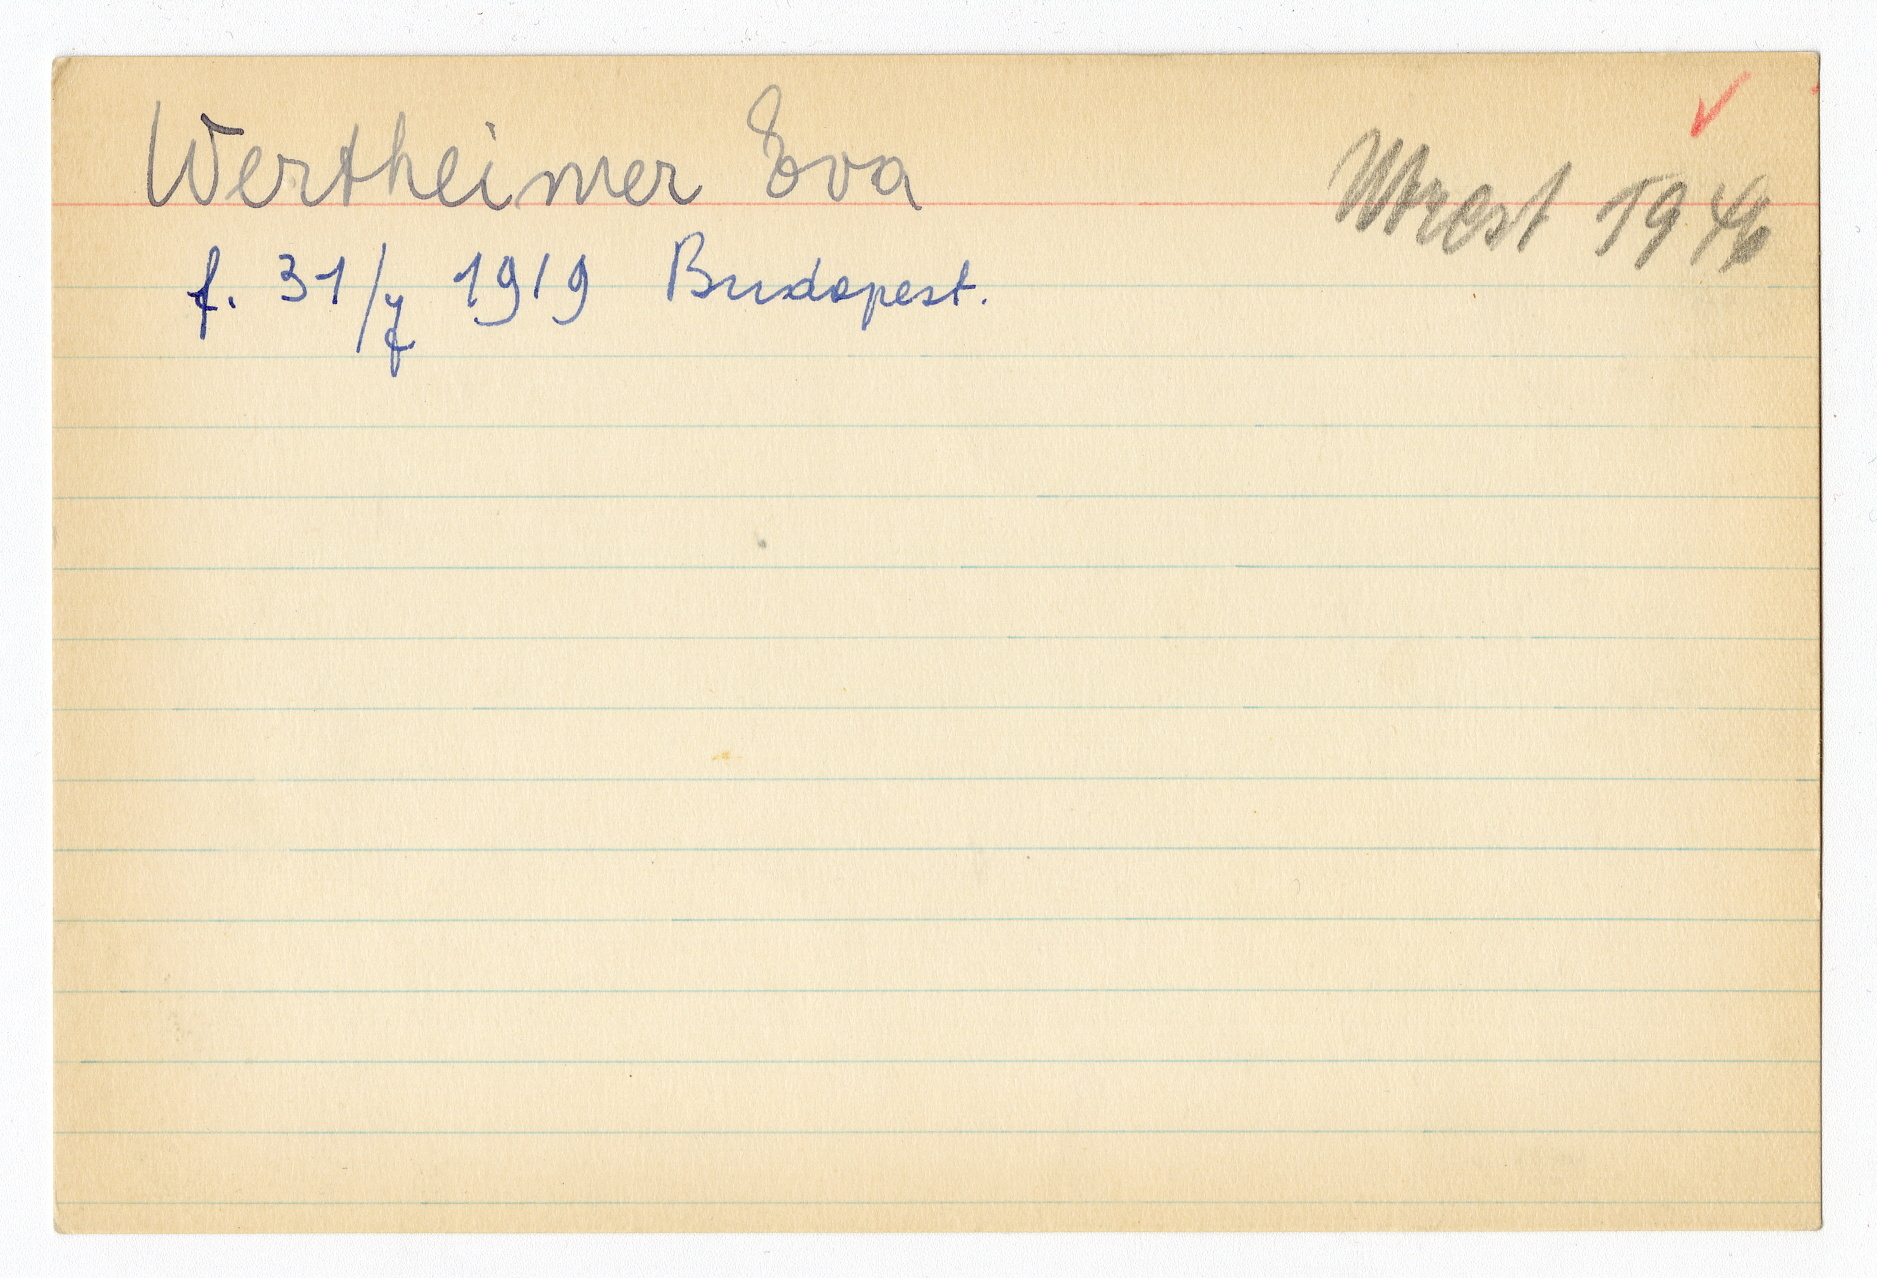 Wertheimer Eva
Utrest 1946
f. 31/7 1919 Budapest.